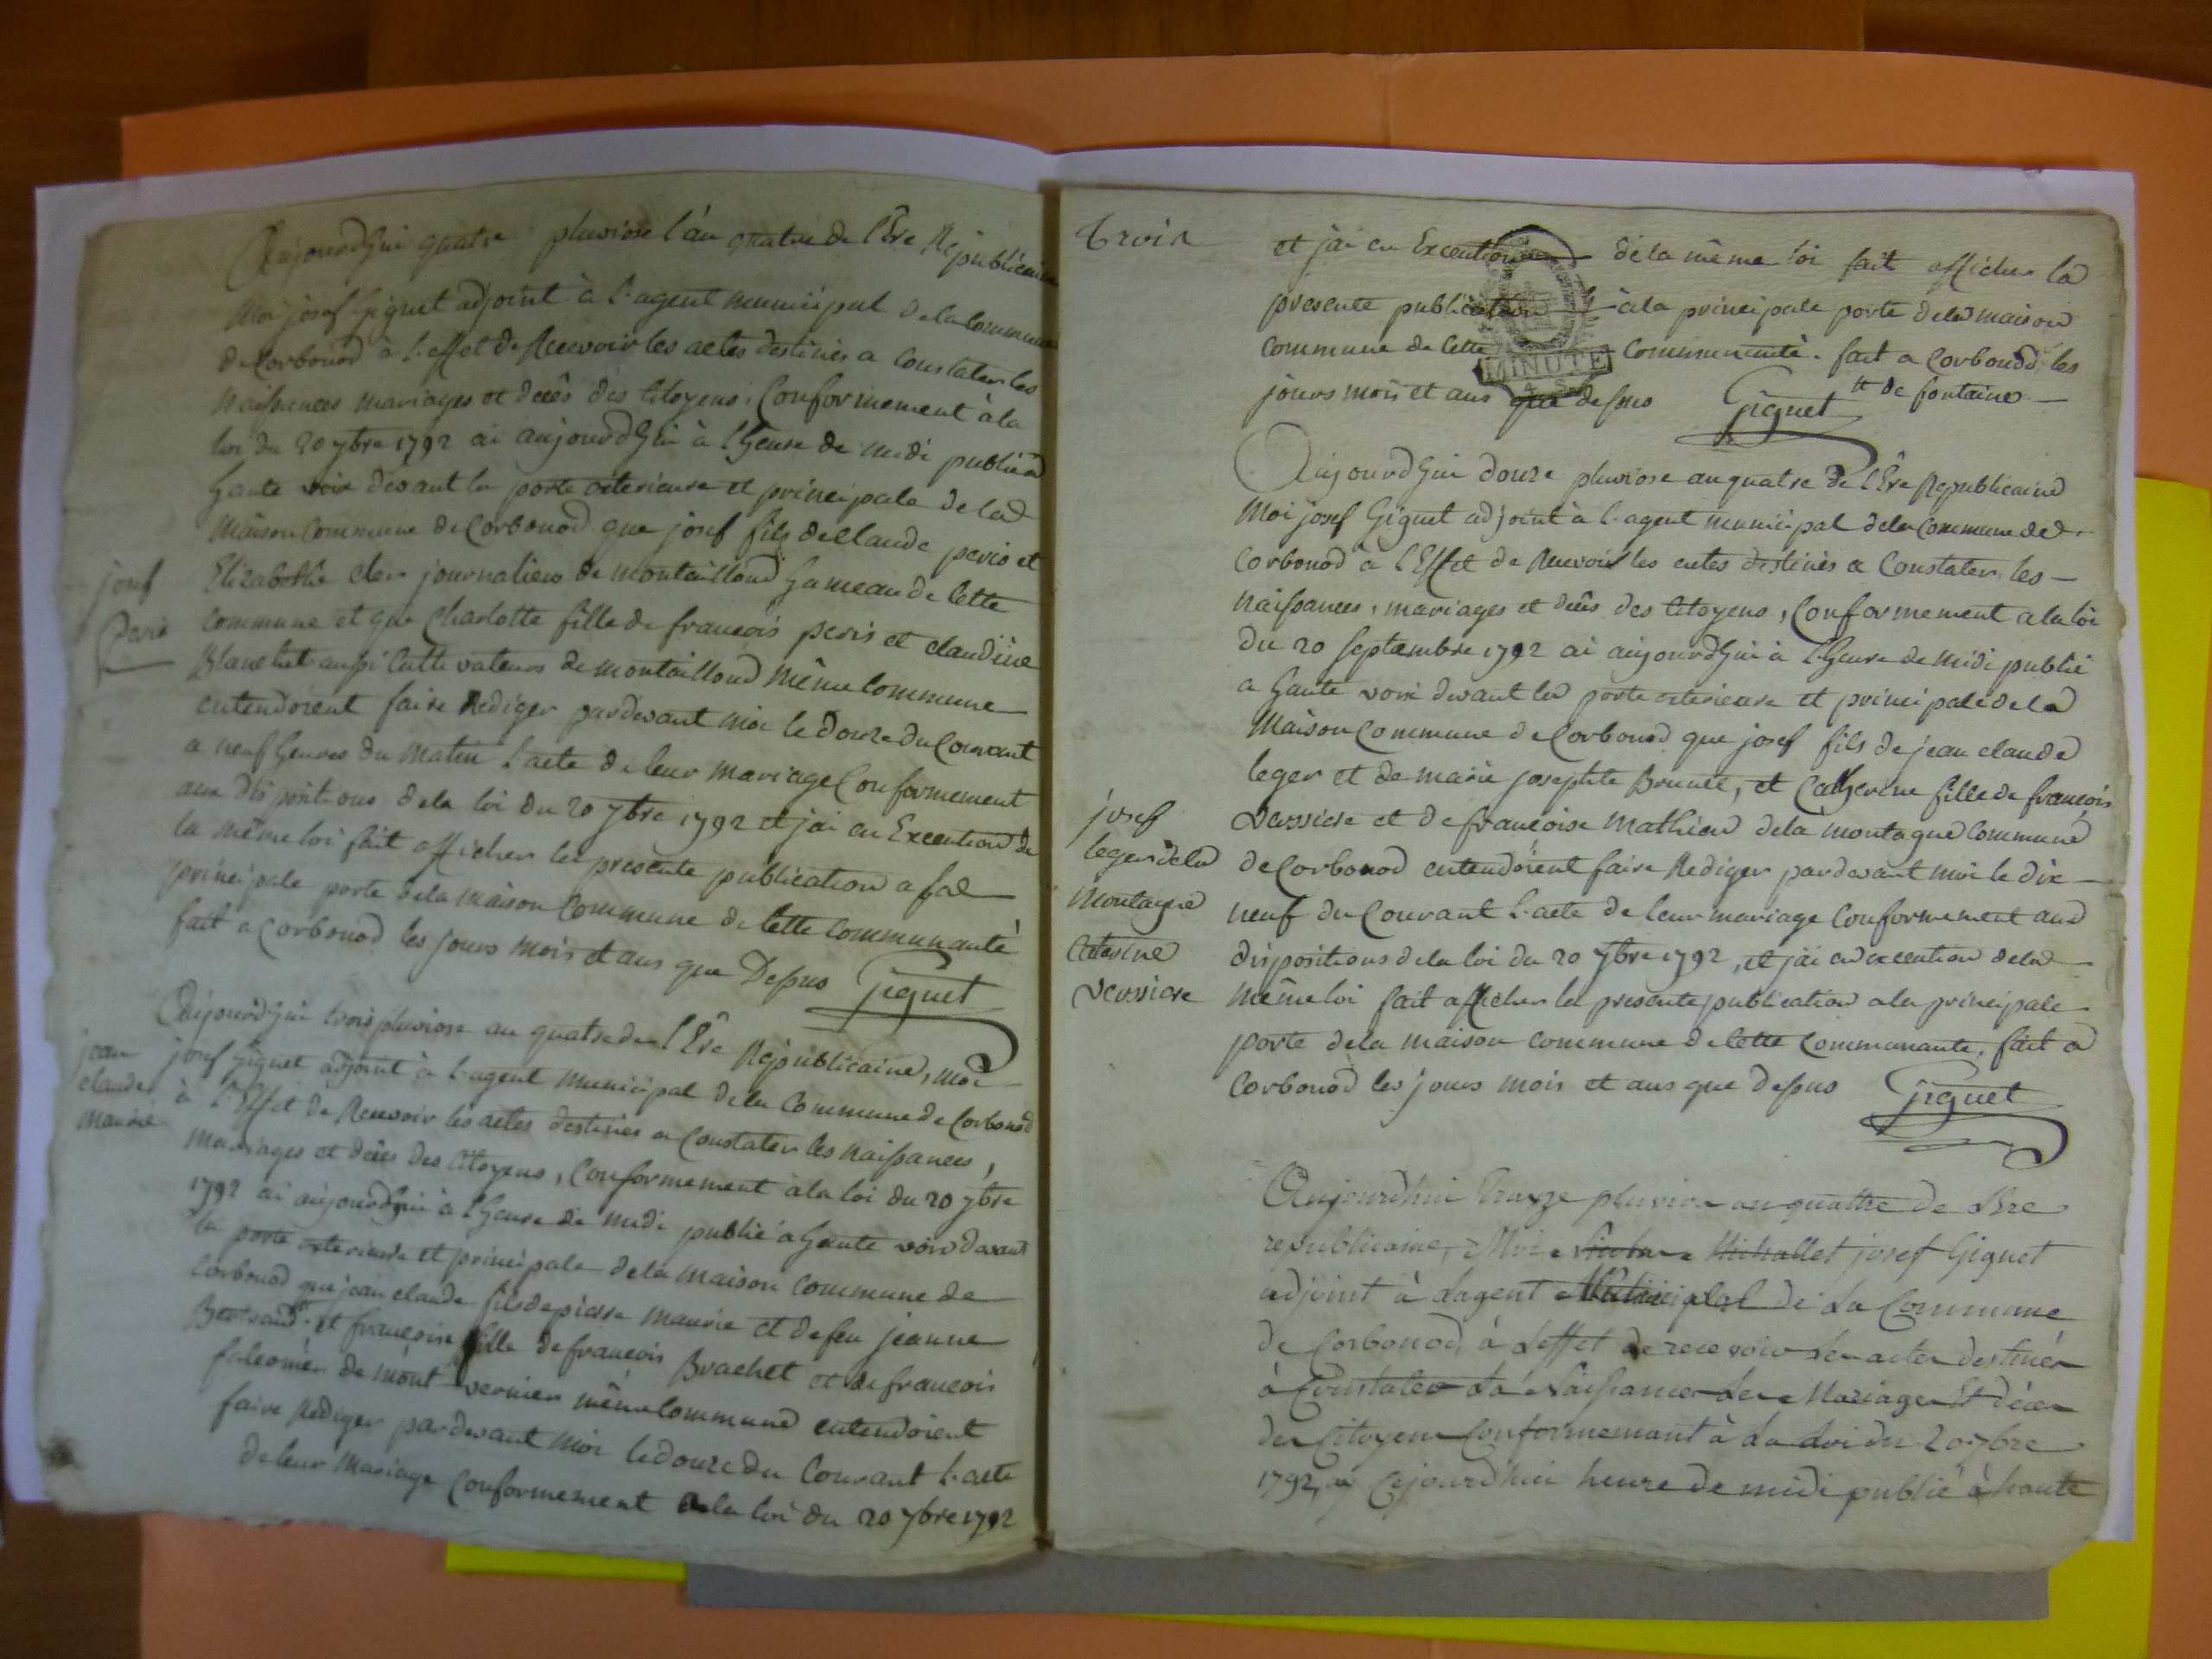 Aujourd'hui quatre pluviose l'an quatre de l'Ere Republicaine
Moi josef Giguet adjoint à l'agent municipal de la commune
de Corbonod à l'effet de Recevoir les actes destinés a constater les
Naissances mariages et décès des Citoyens, Conformement à la
loi du 20 7bre 1792 ai aujourd'hui à l'heure de midi publié a
haute voix devant la porte exterieure et principale de la
Maison Commune de Corbonod que josef fils de Claude peris et
josef
Peris
Elizabethe cler journaliers de montailloud hameau de cette
commune et que Charlotte fille de francois peris et claudine
Blanchet aussi Cultivateurs de montailloud même Commune
entendoient faire Rediger pardevant moi le douze du Courant
a neuf heures du matin l'acte de leur mariage Conformement
aux dispositions de la loi du 20 7bre 1792 et j'ai en Execution de
la même loi fait afficher la presente publication a la
principale porte de la maison Commune de cette communauté
fait a Corbonod les jours mois et ans que Dessus Giguet
jean
claude
maurie
Aujourd'hui trois pluviose an quatre de l'Ere Republicaine, moi
josef Giguet adjoint à l'agent municipal de la Commune de Corbonod
à l'Effet de Recevoir les actes destinés a Constater les Naissances,
Mariages et décès des Citoyens, Conformement à la loi du 20 7bre
1792 ai aujourd'hui à l'heure de midi publié a haute voix devant
la porte exterieure et principale de la maison Commune de
Corbonod que jean claude fils de pierre maurie et de feu jeanne
Bertrand et francoise fille de francois Brachet et de francois
falcomèr de mont vernier même Commune entendoient
faire Rediger pardevant moi le douze du Courant l'acte
de leur Mariage Conformement a la loi du 20 7bre 1792
trois
et j'ai en Execution de la même loi fait afficher la
presente publication à la principale porte de la maison
Commune de cette communauté. fait a Corbonod les
MINUTE
jours mois et ans que dessus Giguet tt de fontaine
Aujourd'hui douze pluviose an quatre de l'Ere Republicaine
Moi josef Giguet adjoint à l'agent municipal de la Commune de
Corbonod à l'Effet de Recevoir les actes destinés a Constater les
Naissances, mariages et décès des Citoyens, Conformement a la loi
du 20 septembre 1792 ai aujourd'hui à l'heure de midi publié
a haute voix devant la porte exterieure et principale de la
Maison Commune de Corbonod que josef fils de jean claude
leger et de marie josephte Brunet, et Catherine fille de francois
josef
leger de la
Montagne
Caterine
Vessiere
Vessiere et de francoise Mathieu de la montagne Commune
de Corbonod entendoient faire Rediger pardevant moi le dix
neuf du Courant l'acte de leur mariage Conformement aux
dispositions de la loi du 20 7bre 1792, et j'ai en execution de la
même loi fait afficher la presente publication a la principale
porte de la maison commune de cette Communauté. fait a
Corbonod les jours mois et ans que dessus Giguet
Aujourdhui Trayze pluviose an quattre de Lere
republicaine, Moi Michallet josef Giguet
adjoint à Lagent Municipal de La Commune
de Corbonod à Leffet de recevoir les actes destinés
à Constater La Naissances Les Mariages Et décès
des Citoyens Conformemant à La Loi du 20 7bre
1792, ay Cejourdhui heure de midi publié à haute